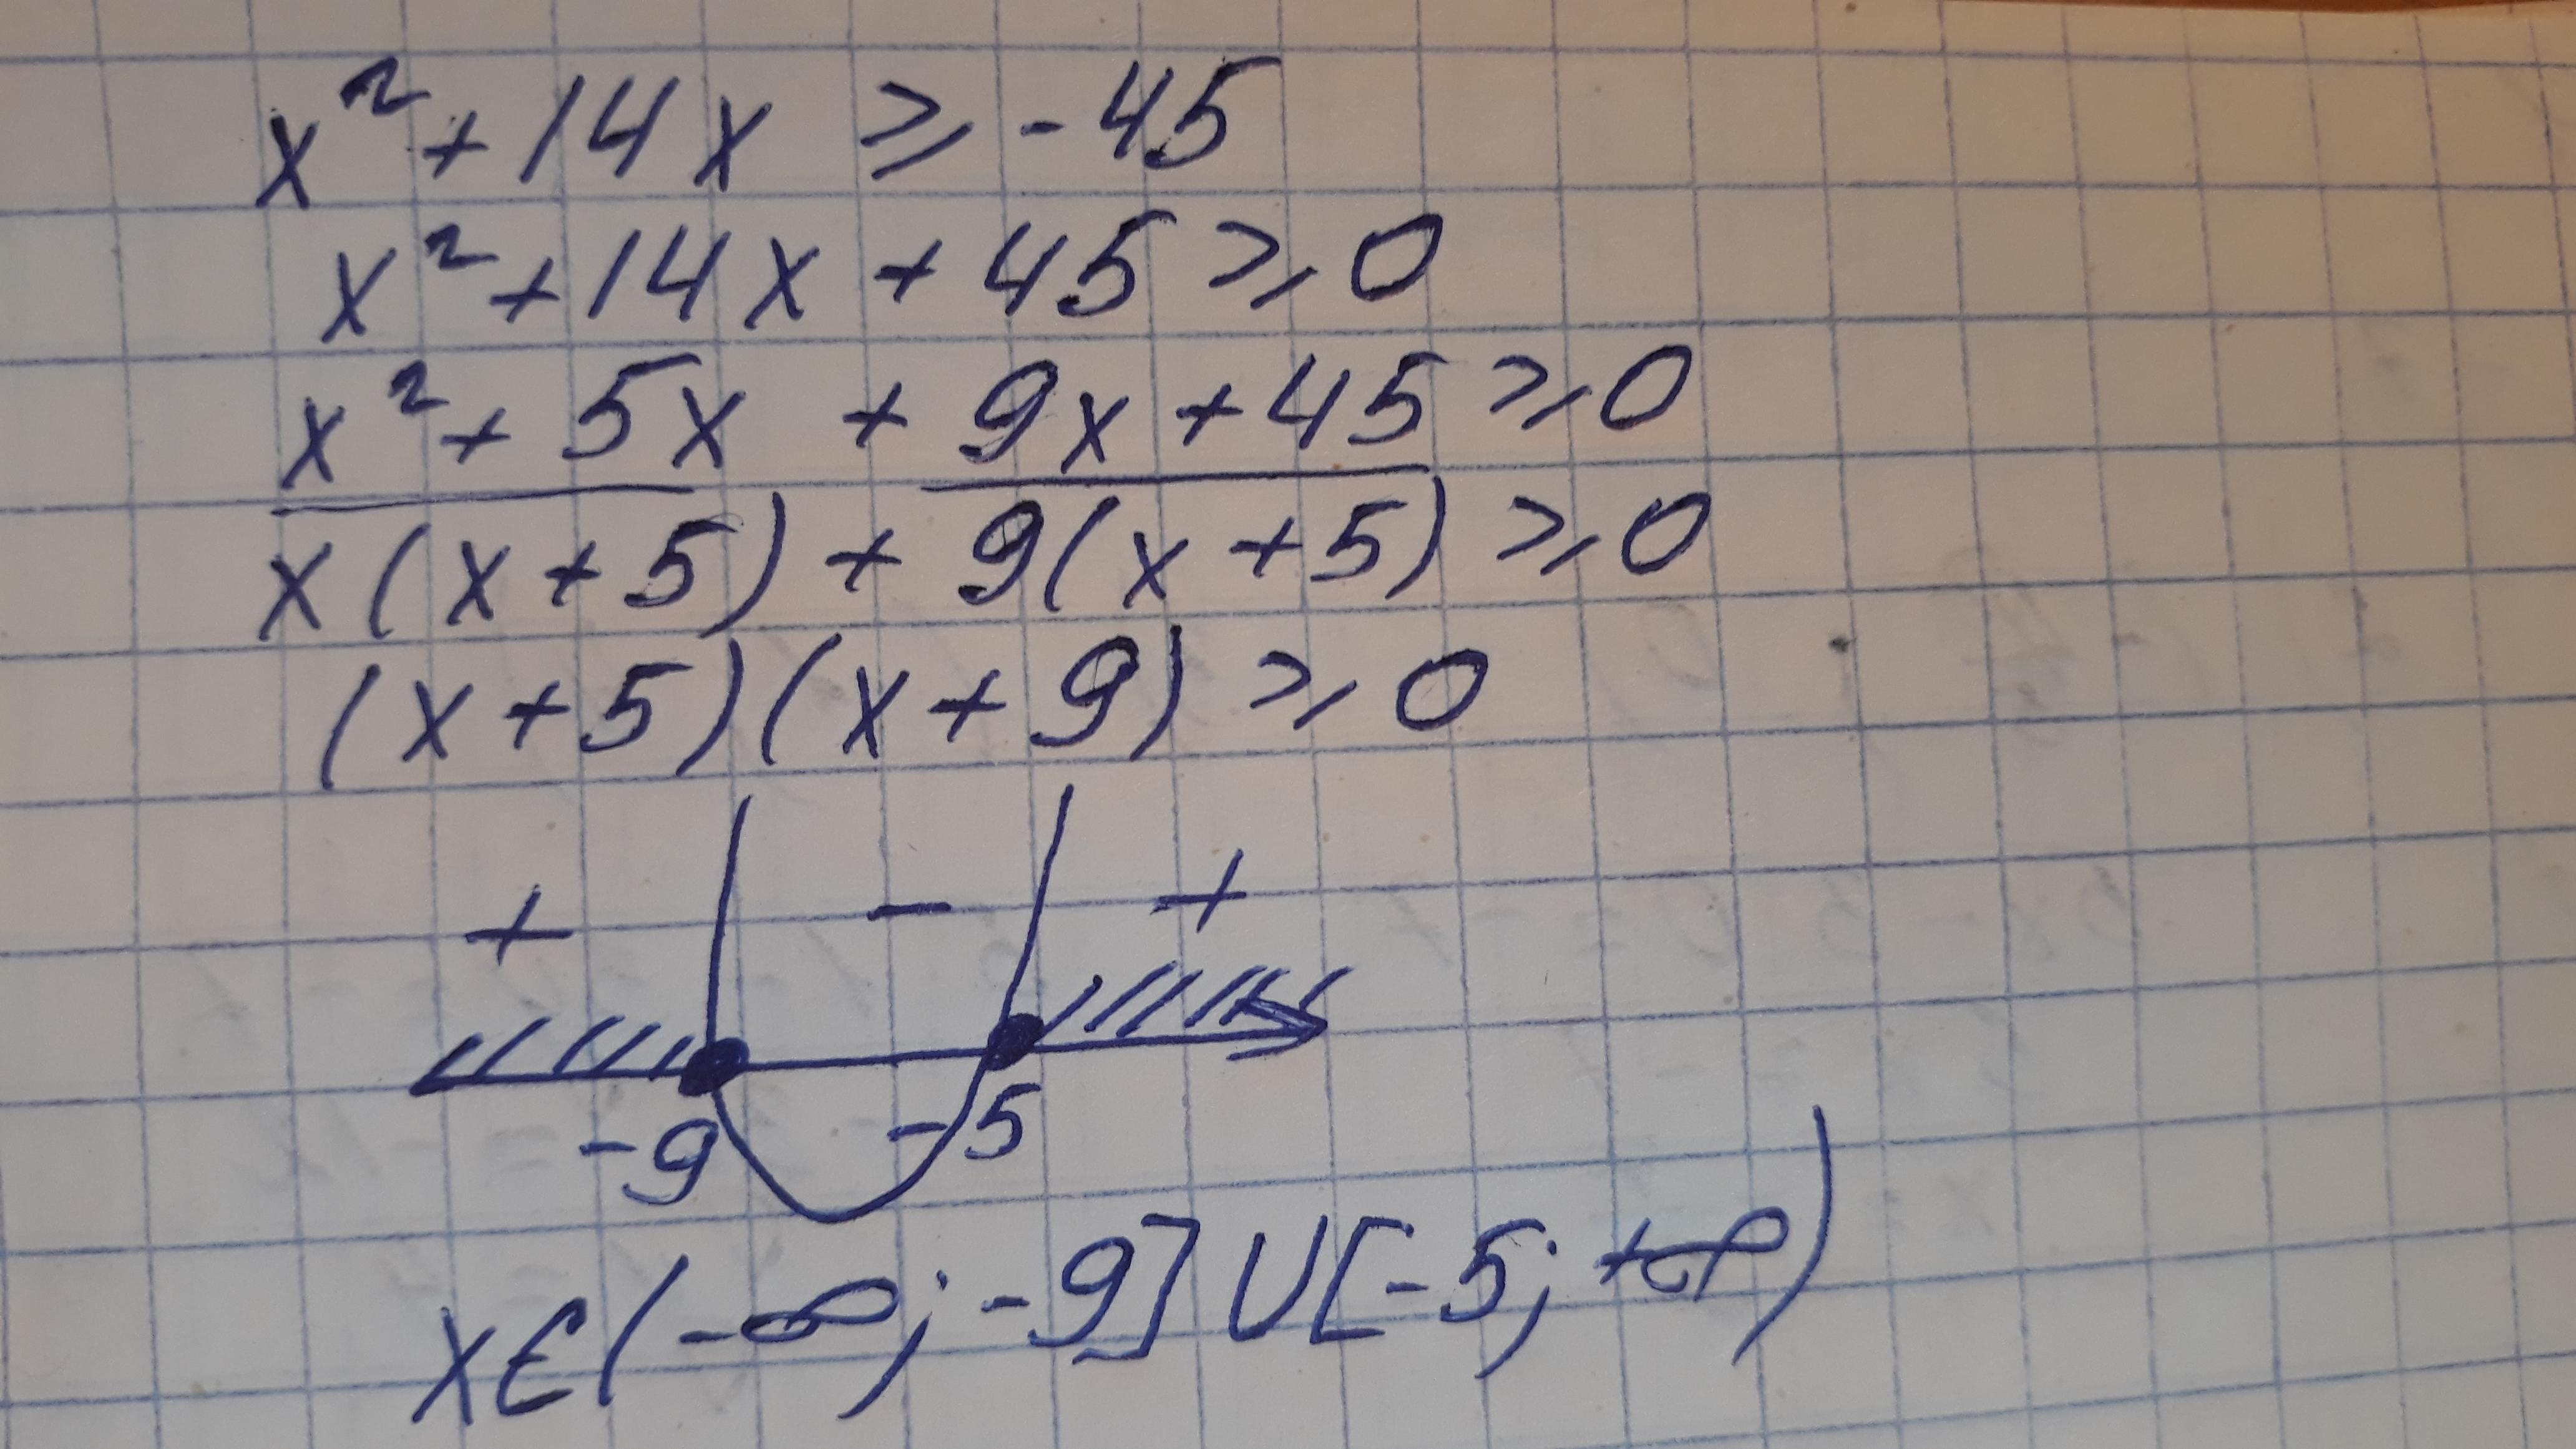 x² + 14x ⩾ -45
x² + 14x + 45 ⩾ 0
x² + 5x + 9x + 45 ⩾ 0
x(x + 5) + 9(x + 5) ⩾ 0
(x + 5)(x + 9) ⩾ 0
+ - +
-9 -5
x∈(-∞; -9]∪[-5; +∞)